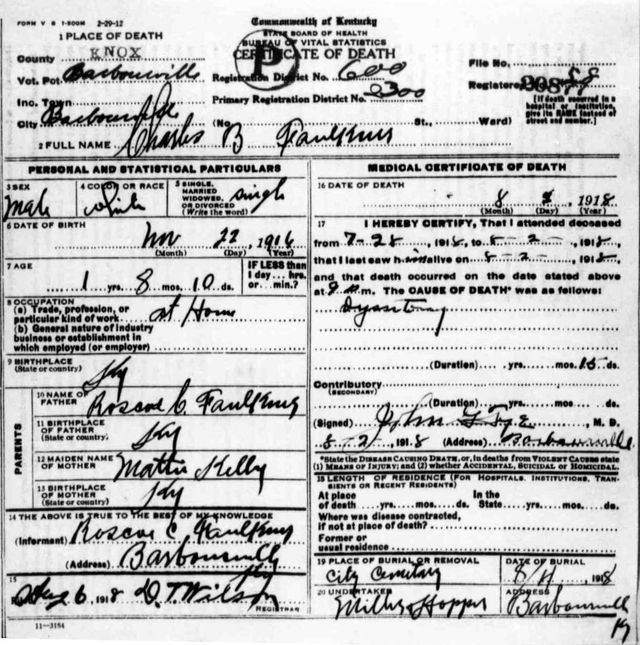 FORM V S 1-500M 2-29-12
Commonwealth of Kentucky
STATE BOARD OF HEALTH
BUREAU OF VITAL STATISTICS
CERTIFICATE OF DEATH
1 PLACE OF DEATH
County KNOX
Vot. Pct. Barbourville
Inc. Town
City Barbourville
Registration District No. 600
Primary Registration District No. 2300
File No.
Registered
[If death occurred in a hospital or institution, give its NAME instead of street and number.]
(No. St., Ward)
2 FULL NAME Charles B Faulkner
PERSONAL AND STATISTICAL PARTICULARS
3 SEX Male
4 COLOR OR RACE White
5 SINGLE, MARRIED WIDOWED, OR DIVORCED (Write the word) Single
6 DATE OF BIRTH Nov 22, 1916
(Month) (Day) (Year)
7 AGE 1 yrs. 8 mos. 10 ds.
IF LESS than 1 day ... hrs. or ... min.?
8 OCCUPATION
(a) Trade, profession, or particular kind of work at Home
(b) General nature of industry business or establishment in which employed (or employer)
9 BIRTHPLACE (State or country) Ky
PARENTS
10 NAME OF FATHER Roscoe C. Faulkner
11 BIRTHPLACE OF FATHER (State or country) Ky
12 MAIDEN NAME OF MOTHER Mattie Kelly
13 BIRTHPLACE OF MOTHER (State or country) Ky
14 THE ABOVE IS TRUE TO THE BEST OF MY KNOWLEDGE
(Informant) Roscoe C. Faulkner
(Address) Barbourville Ky
15 Aug 6, 1918 D. T. Wilson
REGISTRAR
11-3184
MEDICAL CERTIFICATE OF DEATH
16 DATE OF DEATH
8 2, 1918
(Month) (Day) (Year)
17 I HEREBY CERTIFY, That I attended deceased
from 7-28, 1918, to 8-2-, 1918,
that I last saw him alive on 8-2-, 1918,
and that death occurred on the date stated above
at m. The CAUSE OF DEATH* was as follows:
Dysentery
(Duration) yrs. mos. 15 ds.
Contributory
(SECONDARY)
(Duration) yrs. mos. ds.
(Signed) John G Tye, M. D.
8-2, 1918 (Address) Barbourville
*State the DISEASE CAUSING DEATH, or, in deaths from VIOLENT CAUSES state (1) MEANS OF INJURY; and (2) whether ACCIDENTAL, SUICIDAL OR HOMICIDAL.
18 LENGTH OF RESIDENCE (FOR HOSPITALS, INSTITUTIONS, TRANSIENTS OR RECENT RESIDENTS)
At place of death yrs. mos. ds. In the State yrs. mos. ds.
Where was disease contracted, if not at place of death?
Former or usual residence
19 PLACE OF BURIAL OR REMOVAL City Cemetary
DATE OF BURIAL 1918
20 UNDERTAKER Miller Hopper
ADDRESS Barbourville Ky